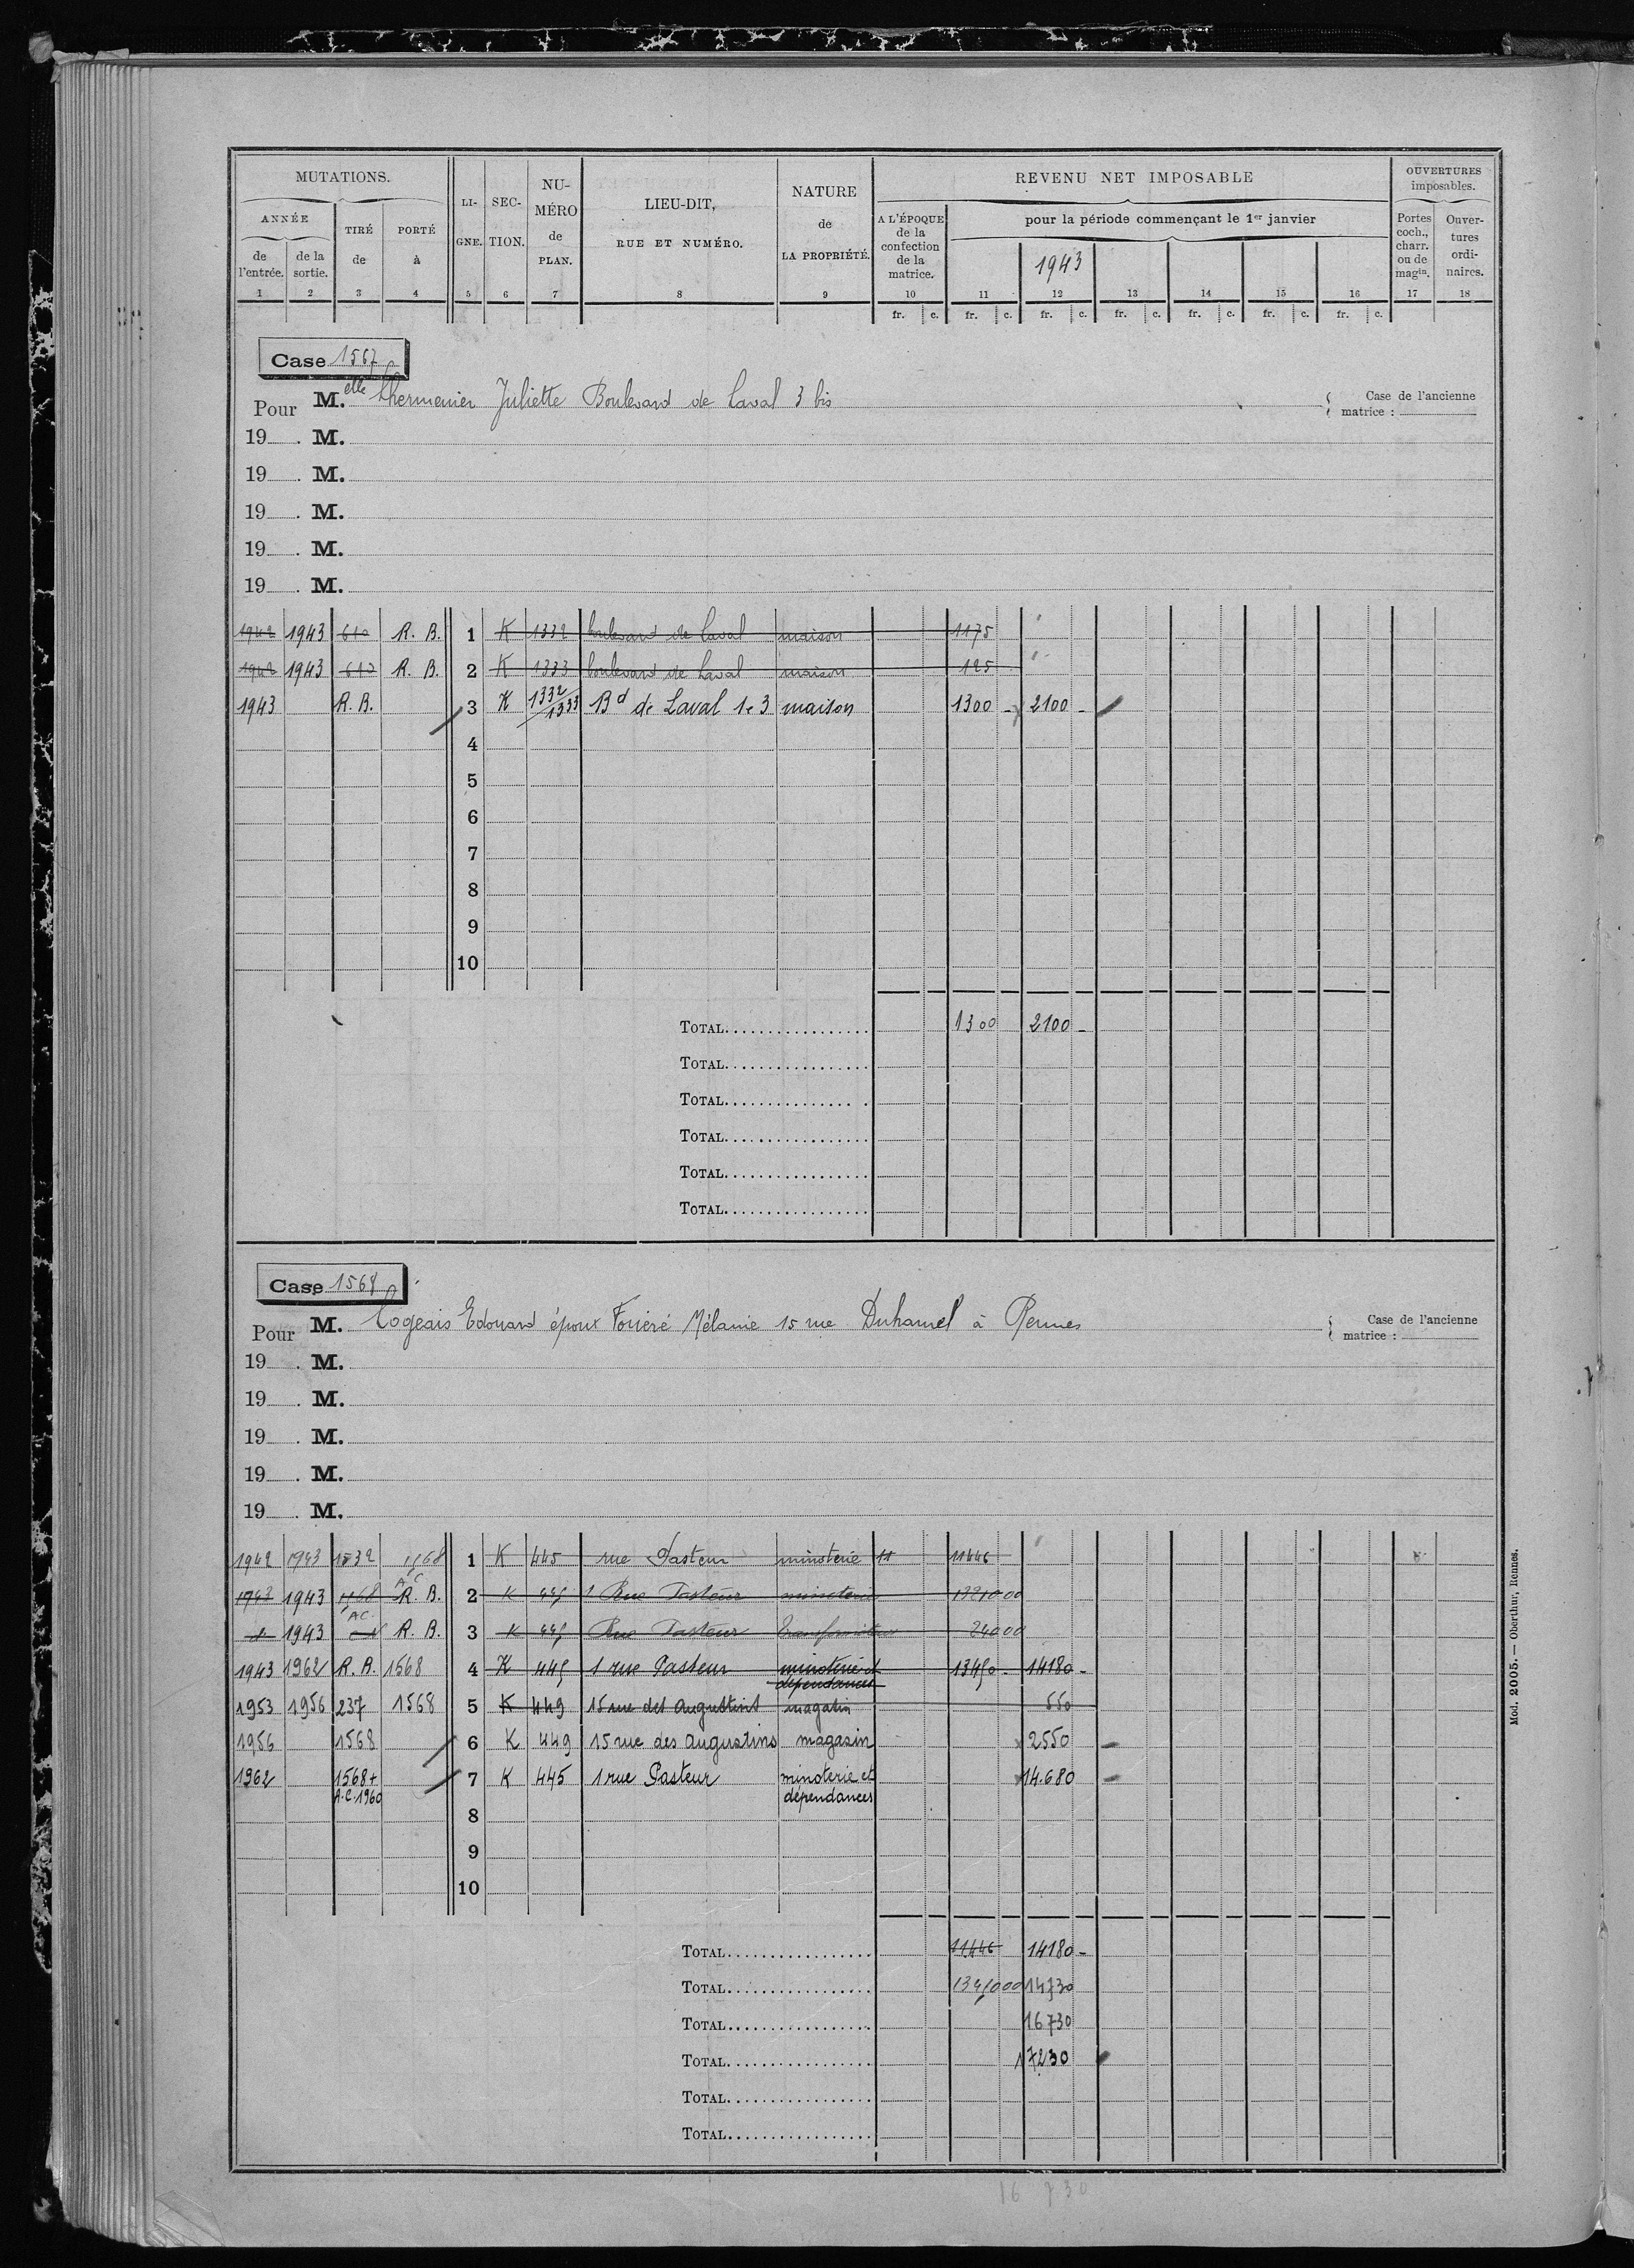 MUTATIONS. LI- SEC- NU- LIEU-DIT, NATURE REVENU NET IMPOSABLE OUVERTURES imposables.
ANNÉE TIRÉ PORTÉ GNE. TION. MÉRO RUE ET NUMÉRO. de A L'ÉPOQUE de la confection de la matrice. pour la période commençant le 1er janvier Portes coch., charr. ou de magin. Ouver- tures ordi- naires.
de l'entrée. de la sortie. de à de PLAN. LA PROPRIÉTÉ. 1943
1 2 3 4 5 6 7 8 9 10 11 12 13 14 15 16 17 18
fr. c. fr. c. fr. c. fr. c. fr. c. fr. c. fr. c.
Case 1567
Pour M.elle Lhermenier Juliette Boulevard de Laval 3 bis Case de l'ancienne matrice :
19 . M.
19 . M.
19 . M.
19 . M.
19 . M.
1942 1943 610 R. B. 1 K 1332 boulevard de Laval maison 1175
1942 1943 610 R. B. 2 K 1333 boulevard de Laval maison 125
1943 R. B. 3 K 1332/1333 Bd de Laval 1 e 3 maison 1300 - 2100 -
4
5
6
7
8
9
10
TOTAL 1300 2100 -
TOTAL
TOTAL
TOTAL
TOTAL
TOTAL
Case 1568
Pour M. Logeais Edouard époux Mélanie 15 rue Duhamel à Rennes Case de l'ancienne matrice :
19 . M.
19 . M.
19 . M.
19 . M.
19 . M.
1942 1943 1532 1568 1 K 445 rue Pasteur minoterie 11 11446
1943 1943 1568 AC R. B. 2 K 445 1 Rue Pasteur minoterie 13210 00
d° 1943 R. B. 3 K 445 Rue Pasteur 240 00
1943 1962 R. B. 1568 4 K 445 1 rue Pasteur minoterie et dépendances 13450 - 14180 -
1953 1956 237 1568 5 K 449 15 rue des Augustins magasin 550
1956 1568 6 K 449 15 rue des Augustins magasin 2550
1962 1568 + A.C. 1960 7 K 445 1 rue Pasteur minoterie et dépendances 14.680
8
9
10
TOTAL 11446 14180 -
TOTAL 13450 00 14730
TOTAL 16730
TOTAL 17230
TOTAL
TOTAL
16 730
Mod. 2005. — Oberthur, Rennes.